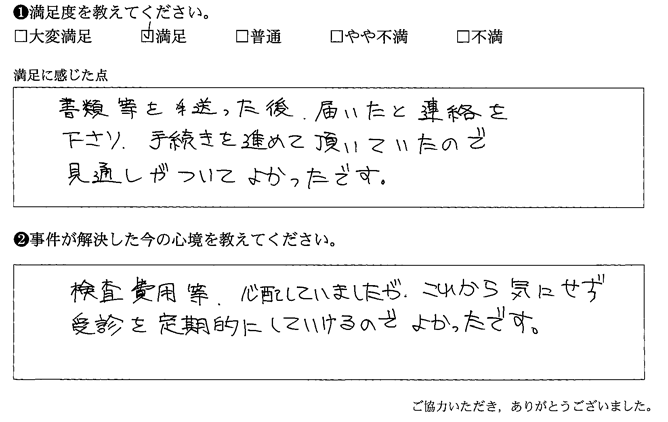 ❶満足度を教えてください。
□大変満足 ☑満足 □普通 □やや不満 □不満
満足に感じた点
書類等を手送った後、届いたと連絡を
下さり、手続きを進めて頂いていたので
見通しがついてよかったです。
❷事件が解決した今の心境を教えてください。
検査費用等、心配していましたが、これから気にせず
受診を定期的にしていけるのでよかったです。
ご協力いただき、ありがとうございました。